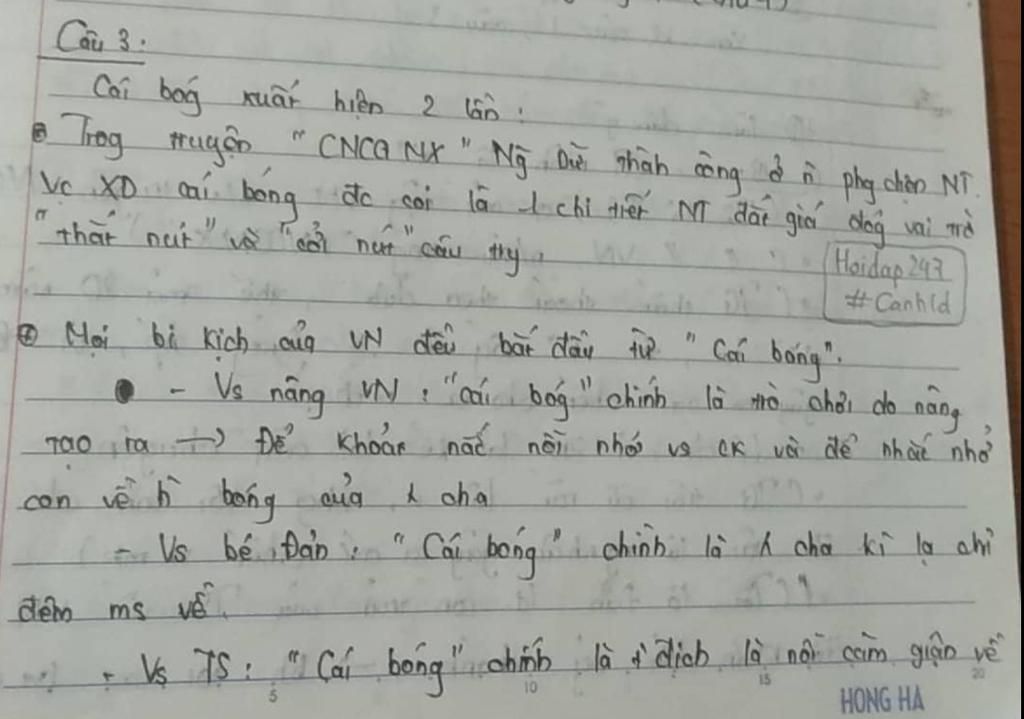 Câu 3:
Cái boǵ xuất hiện 2 lần:
Trog truyện "CNCG NX" Ng̃ Dữ thành công ở ǹ phg chện NT.
Vc XD cái bóng đc coi là 1 chi tiết NT đắt giá đóg vai trò
"thắt nút" và "cởi nút" câu
Hoidap247
#Canhld
Mọi bi kịch của VN đều bắt đầu từ "Cái bóng".
- Vs nàng VN: "cái boǵ" chính là trò chơi do nàng
tạo ra → Để nỗi nhớ vs ck và để nhắc nhở
con về h̀ bóng của cha
- Vs bé Đản: "Cái bóng" chính là cha kì lạ chỉ
đêm ms về.
- Vs TS: "Cái bóng" chính là địch là nỗi căm giận về
5 10 15 20
HONG HA